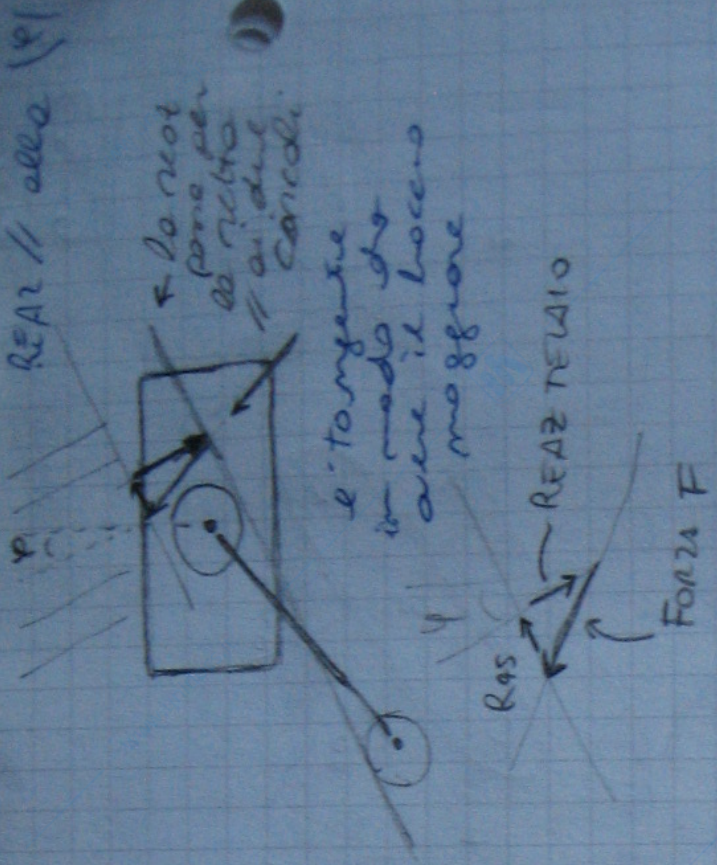 REAZ // alla (φ)
← la reaz
passa per
la retta
// ai due
cerchi.
e' tangente
in modo da
avere il braccio
maggiore
φ
φ
R45
REAZ TELAIO
FORZA F